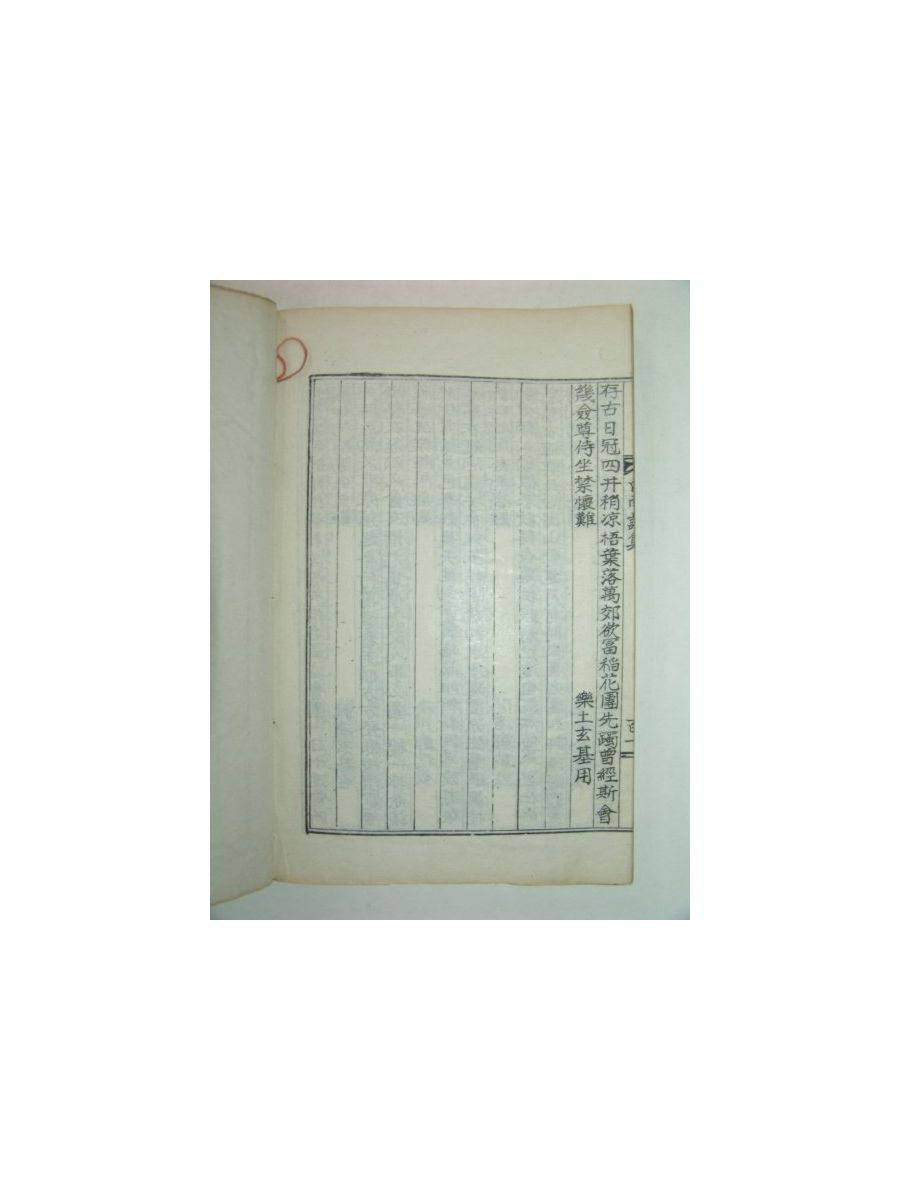 存古日冠四井稍凉梧葉落萬郊欲富稻花團先躅曾經斯會
幾僉尊侍坐禁懷難
樂土玄基用
詩集
百一